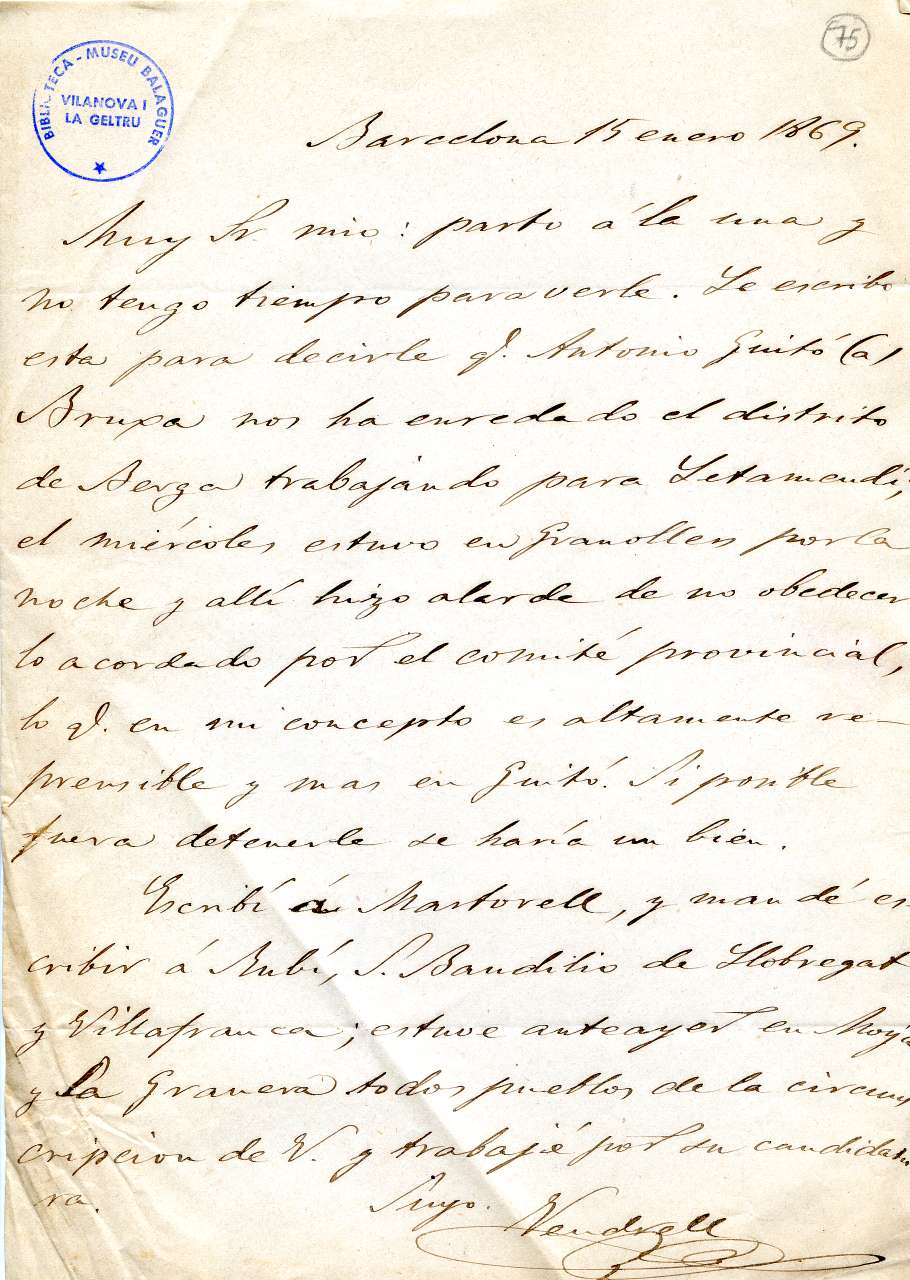 75
BIBLIOTECA - MUSEU BALAGUER
VILANOVA I
LA GELTRU
Barcelona 15 enero 1869.
Muy Sr. mio: parto á la una y
no tengo tiempo para verle. Le escribo
esta para decirle q.e Antonio Guitó (a)
Bruxa nos ha enredado el distrito
de Berga trabajando para Letamendi;
el miércoles estuvo en Granollers por la
noche y allí hizo alarde de no obedecer
lo acordado por el comité provincial,
lo q.e en mi concepto es altamente re-
prensible y mas en Guitó. Si posible
fuera detenerle se haría un bien.
Escribí á Martorell, y mandé es
cribir á Rubí, S. Baudilio de Llobregat
y Villafranca; estuve anteayer en Moyá
y la Granera todos pueblos de la circuns
cripcion de V. y trabajé por su candidatu
ra. Suyo.
Vendrell